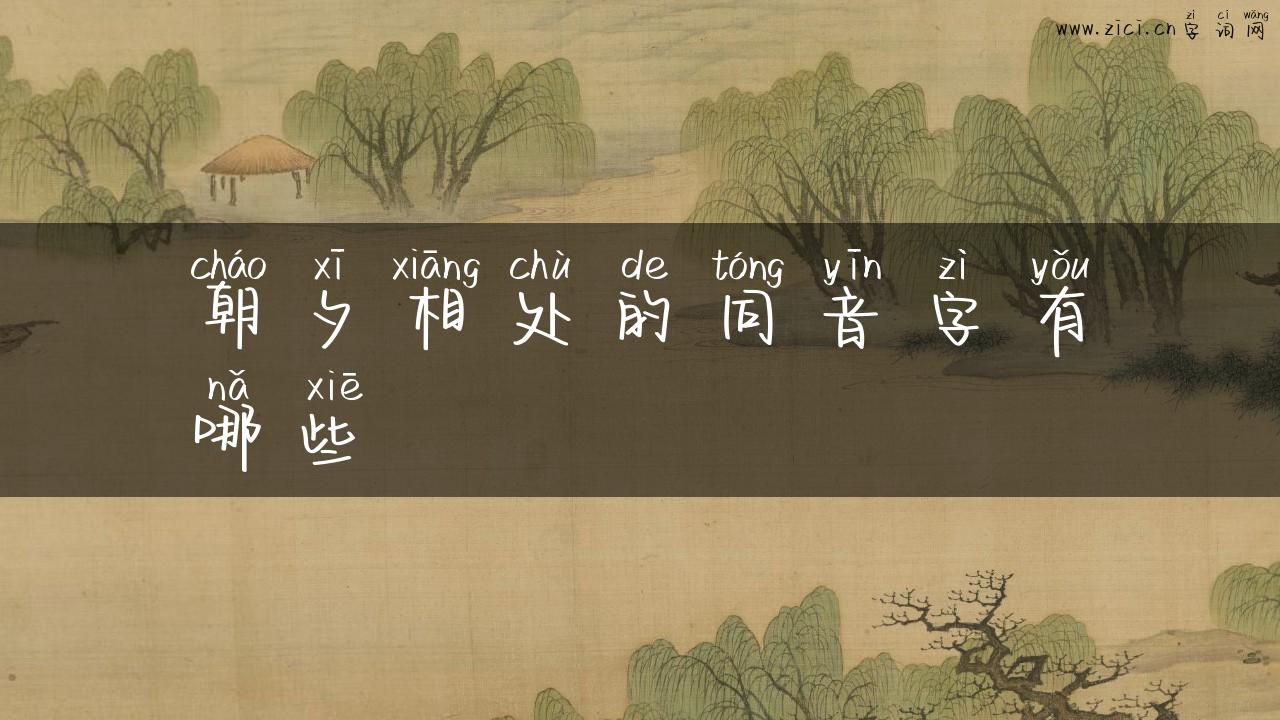 zì cí wǎng
www.zici.cn 字词网
cháo xī xiāng chù de tóng yīn zì yǒu
朝夕相处的同音字有
nǎ xiē
哪些